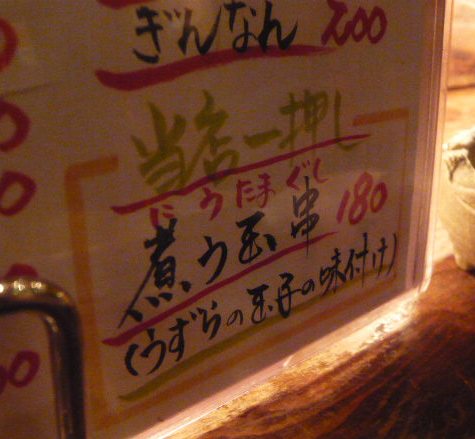 ぎんなん 200
当店一押し
にうたまぐし
煮う玉串 180
(うずらの玉子の味付け)